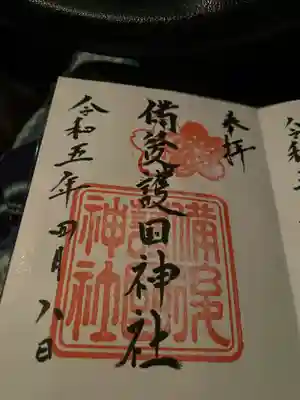 令和
奉拝
備後護国神社
令和五年四月八日
備後
護國
神社